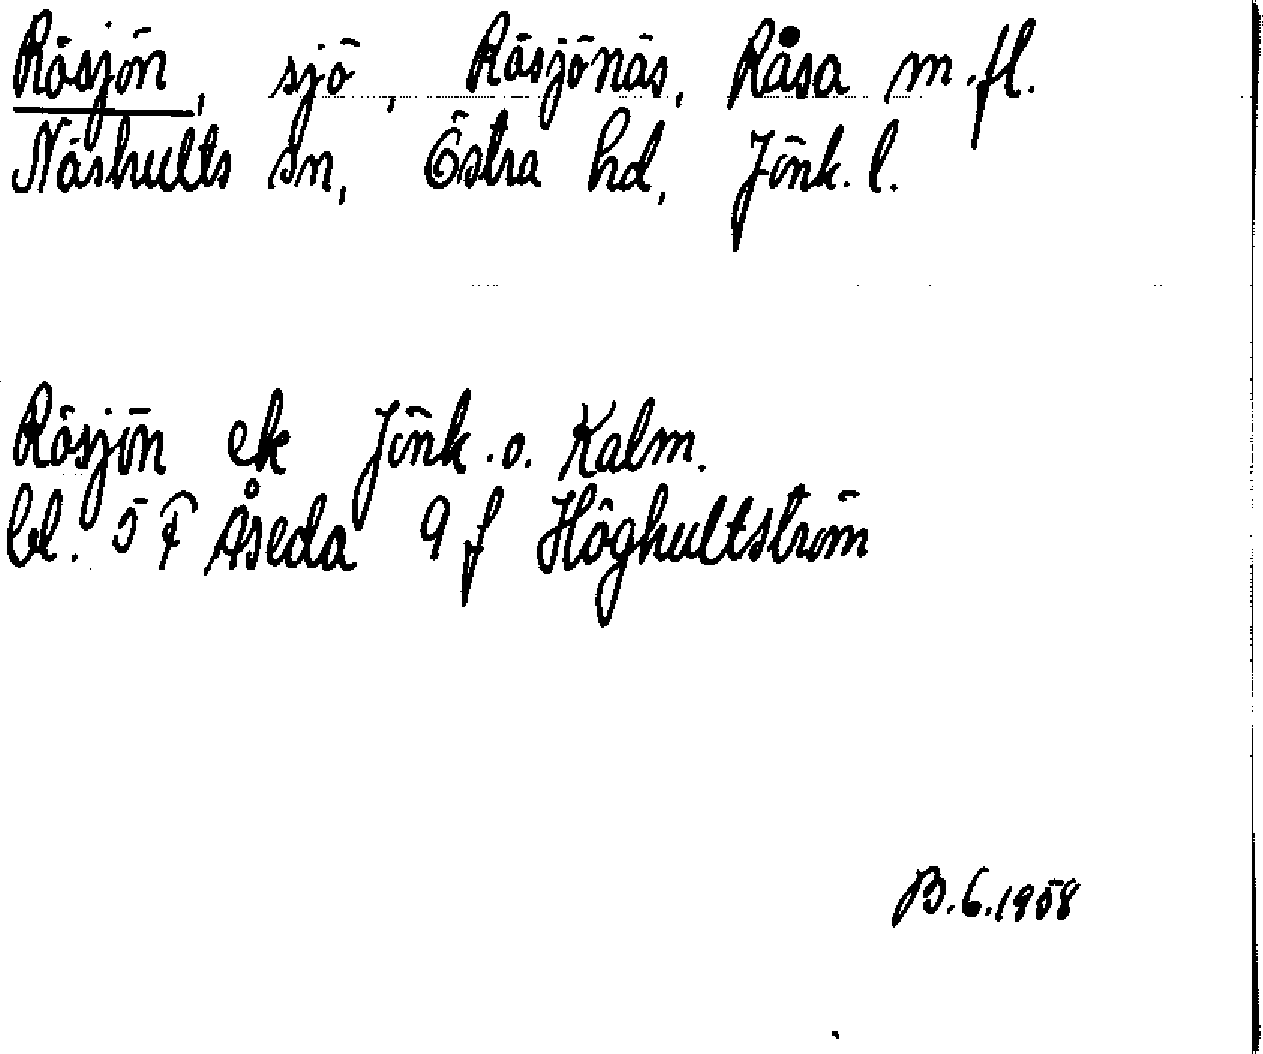 Räsjön, sjö, Räsjönäs, Råsa m.fl.
Näshults sn, Östra hd, Jönk. l.
Räsjön ek Jönk. o. Kalm.
bl. 5 F Åseda 9 f Höghultström
B. 6. 1958